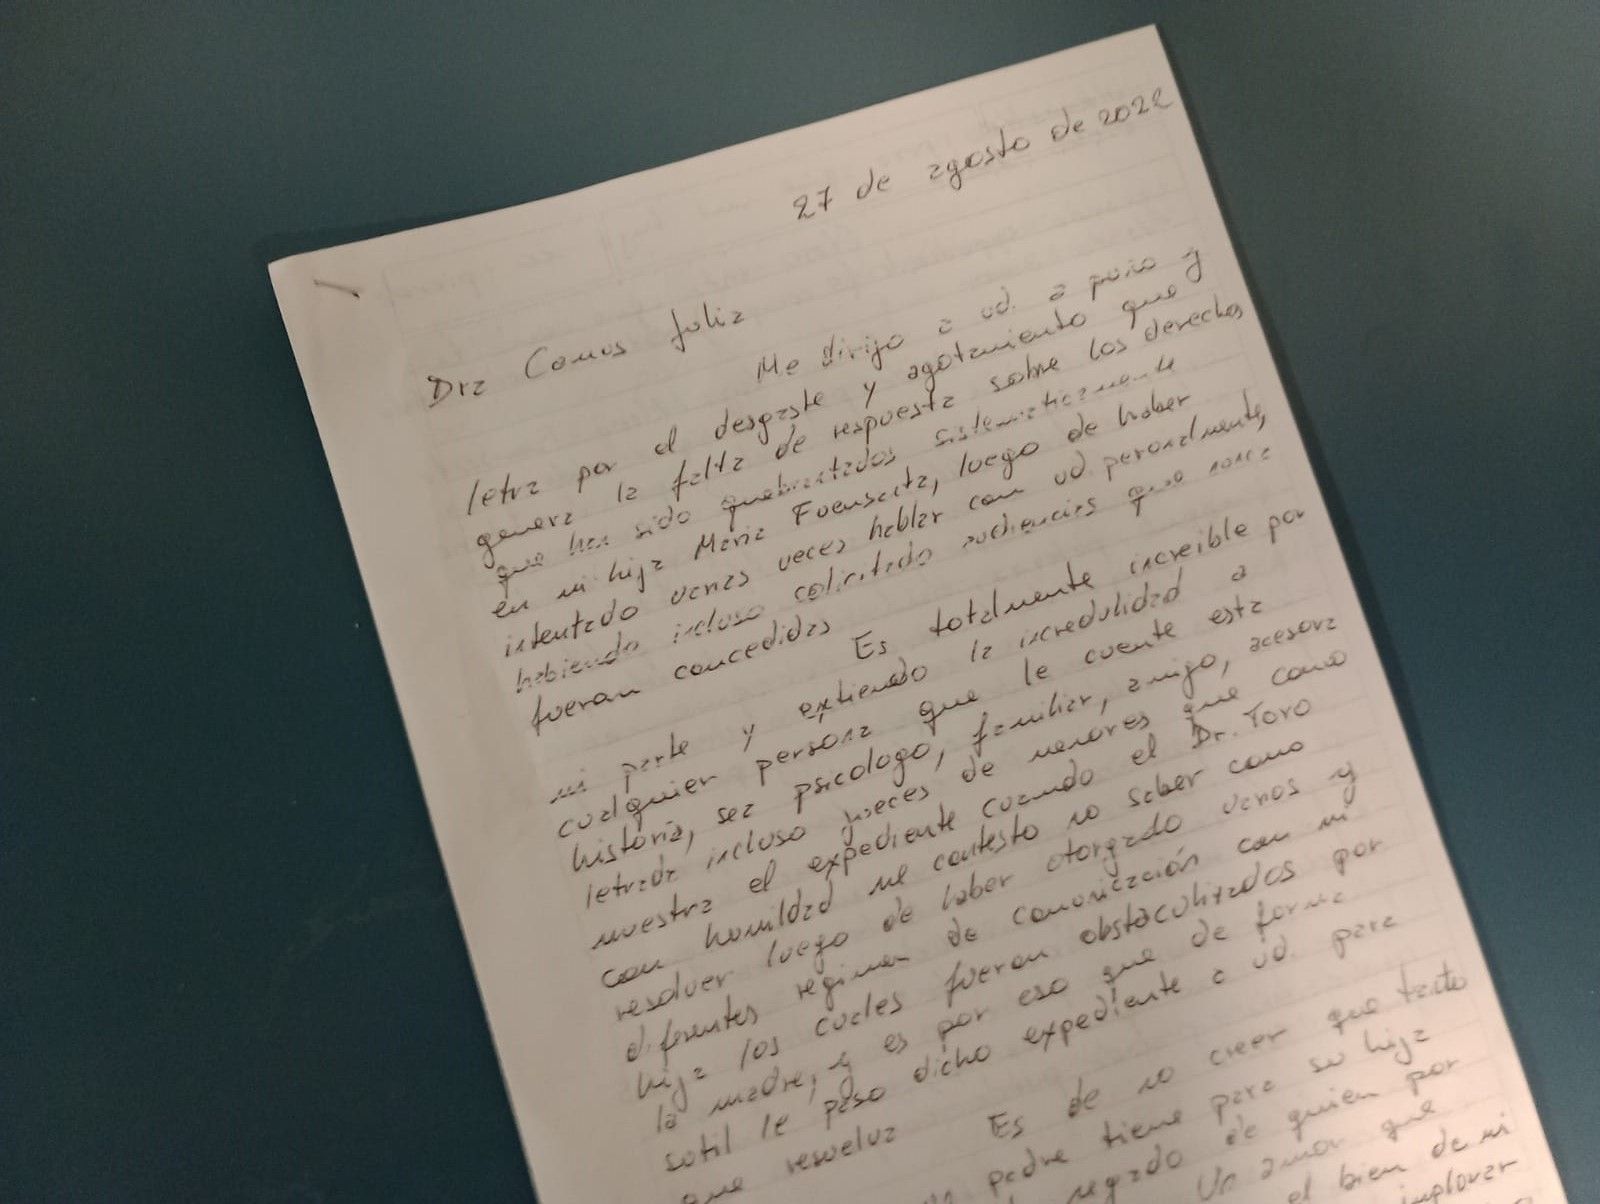 27 de agosto de 2022
Dra Camus Julia
Me dirijo a ud. a puño y
letra por el desgaste y agotamiento que
genera la falta de respuesta sobre los derechos
que han sido quebrantados sistematicamente
en mi hija Maria Fuensanta, luego de haber
intentado varias veces hablar con ud. peronalmente,
habiendo incluso solicitado audiencias que nunca
fueran concedidas
Es totalmente increible por
mi parte y extiendo la incredulidad a
cualquier persona que le cuente esta
historia, sea psicologo, familiar, amigo, acesora
letrada incluso jueces de menores que como
muestra el expediente cuando el Dr. Toro
con humildad me contesto no saber como
resolver luego de haber otorgado varios y
diferentes regimen de comunicación con mi
hija los cuales fueron obstaculizados por
la madre, y es por eso que de forma
sotil le paso dicho expediente a ud. para
que resuelva
Es de no creer que tanto
padre tiene para su hija
negado de quien por
Un amor que
el bien de mi
implorar